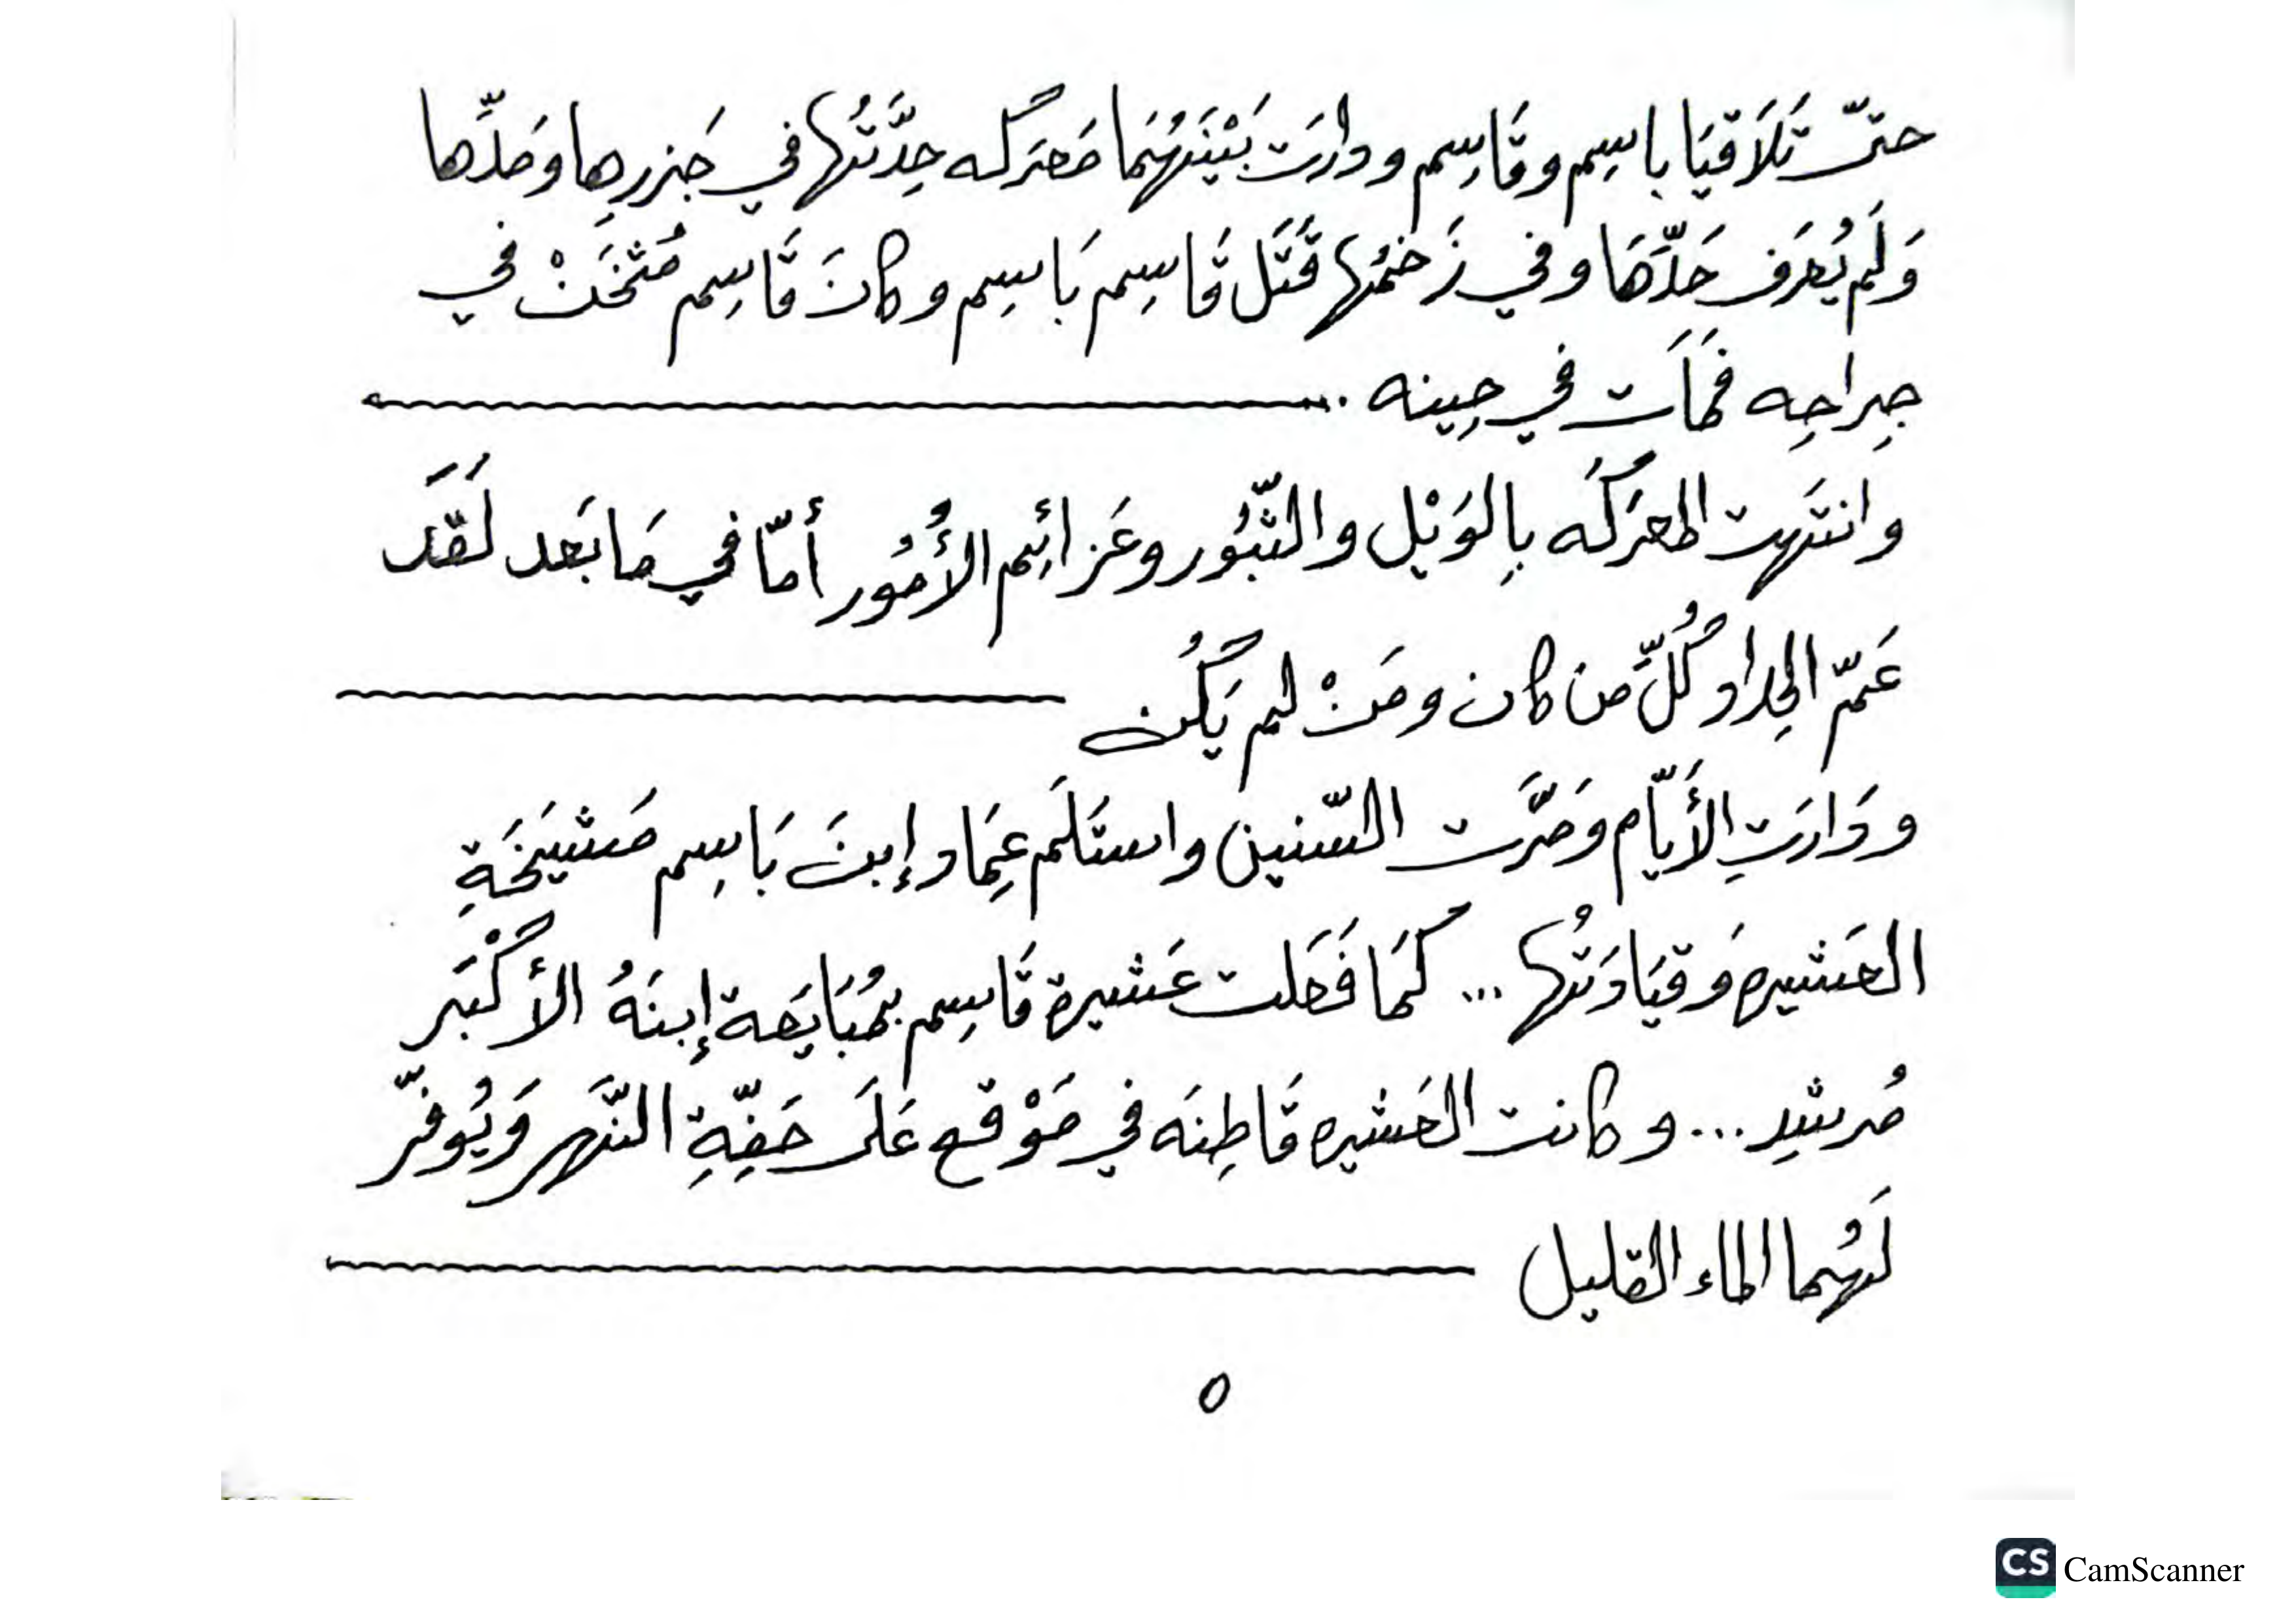 حتىّ تَلَاقيَا باسِم وقَاسِم ودارَت بَيْنَهُمَا مَعرَكه حِدَّتُها في جَزرِها ومَدِّها
وَلَم يُعرَف حَدَّهَا وفي زَخمُها قَتَل قَاسِم بَاسِم وكانَ قَاسِم مُثخَنْ في
جِراحِه فمَاَت في حِينه ...
وانتَهت المعرَكَه بِالوَيْل والثّبُور وعَزائِم الأُمُور أمّا في مَا بَعد لَقَد
عَمّ الحِداد كُلَّ من كان ومَنْ لم يَكُن
ودَارَتِ الأَيّام ومَرَّت السّنين واستَلَم عِمَاد إبنَ بَاسِم مَشيَخَةِ
العَشيره وَقيَادَتُها ... كَمَا فَعَلت عَشيرة قَاسِم بمُبَايَعة إبنَهُ الأكْبَر
مُرشِد ... وكانت العَشيره قَاطِنَه في مَوْقع عَلَى ضَفّةِ النّهَر وَيُوفّر
لَهُما الماء القليل
٥
CS CamScanner